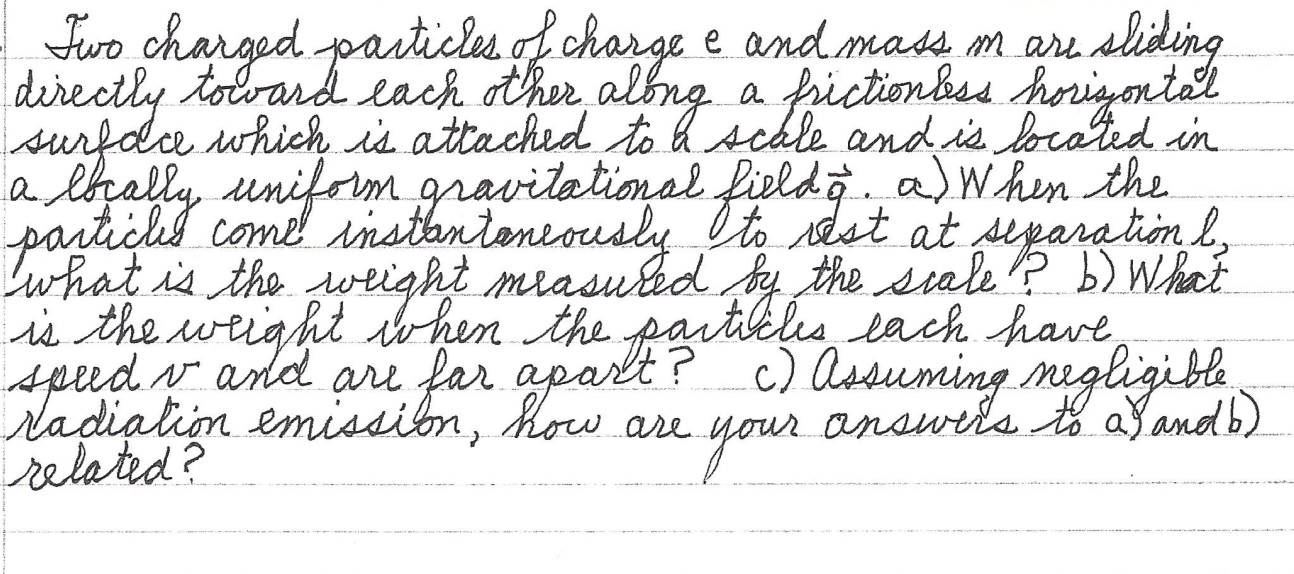 Two charged particles of charge e and mass m are sliding
directly toward each other along a frictionless horizontal
surface which is attached to a scale and is located in
a locally uniform gravitational field g⃗. a) When the
particles come instantaneously to rest at separation l,
what is the weight measured by the scale? b) What
is the weight when the particles each have
speed v and are far apart? c) Assuming negligible
radiation emission, how are your answers to a) and b)
related?